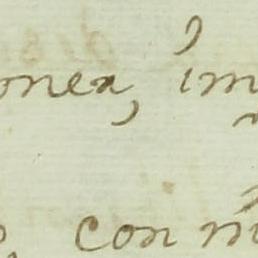 onea, im
con m